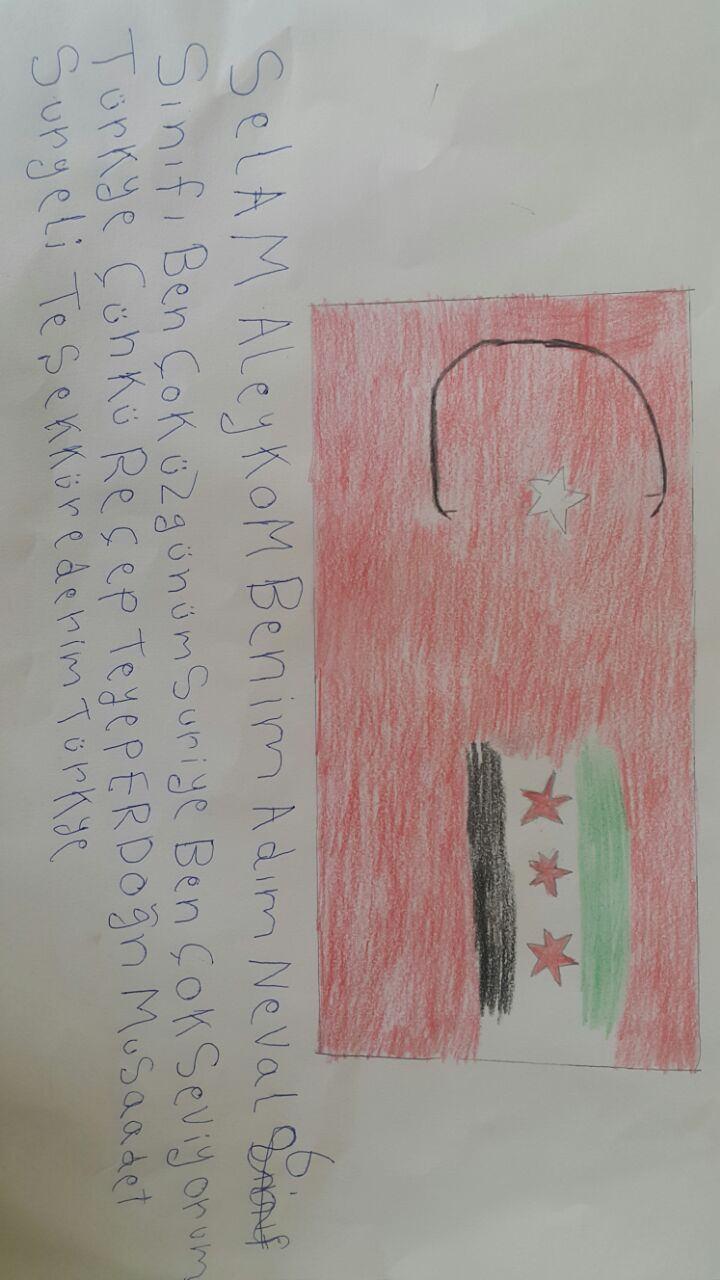 SelAM AleyKoM Benim Adım Neval 6
Sınıfı Ben ÇoK üzgünüm Suriye Ben ÇoK Seviyorum
Türkye Çünkü Reçep TeyeP ERDoğn Musaadet
Suryeli TeşeKKüredenim Türkye